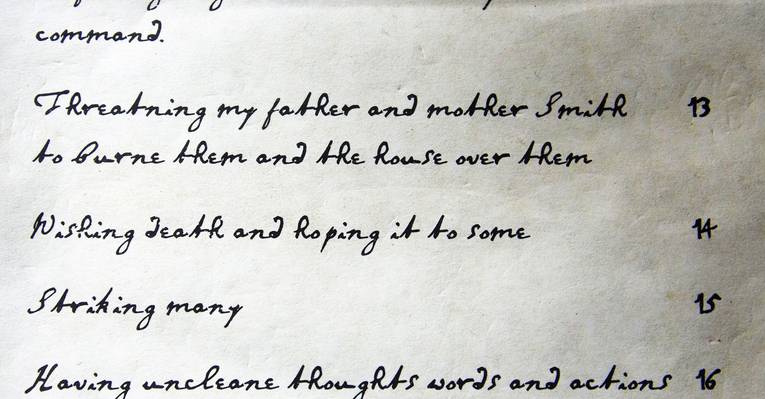 command.
Threatning my father and mother Smith 13
to burne them and the house over them
Wishing death and hoping it to some 14
Striking many 15
Having uncleane thoughts words and actions 16